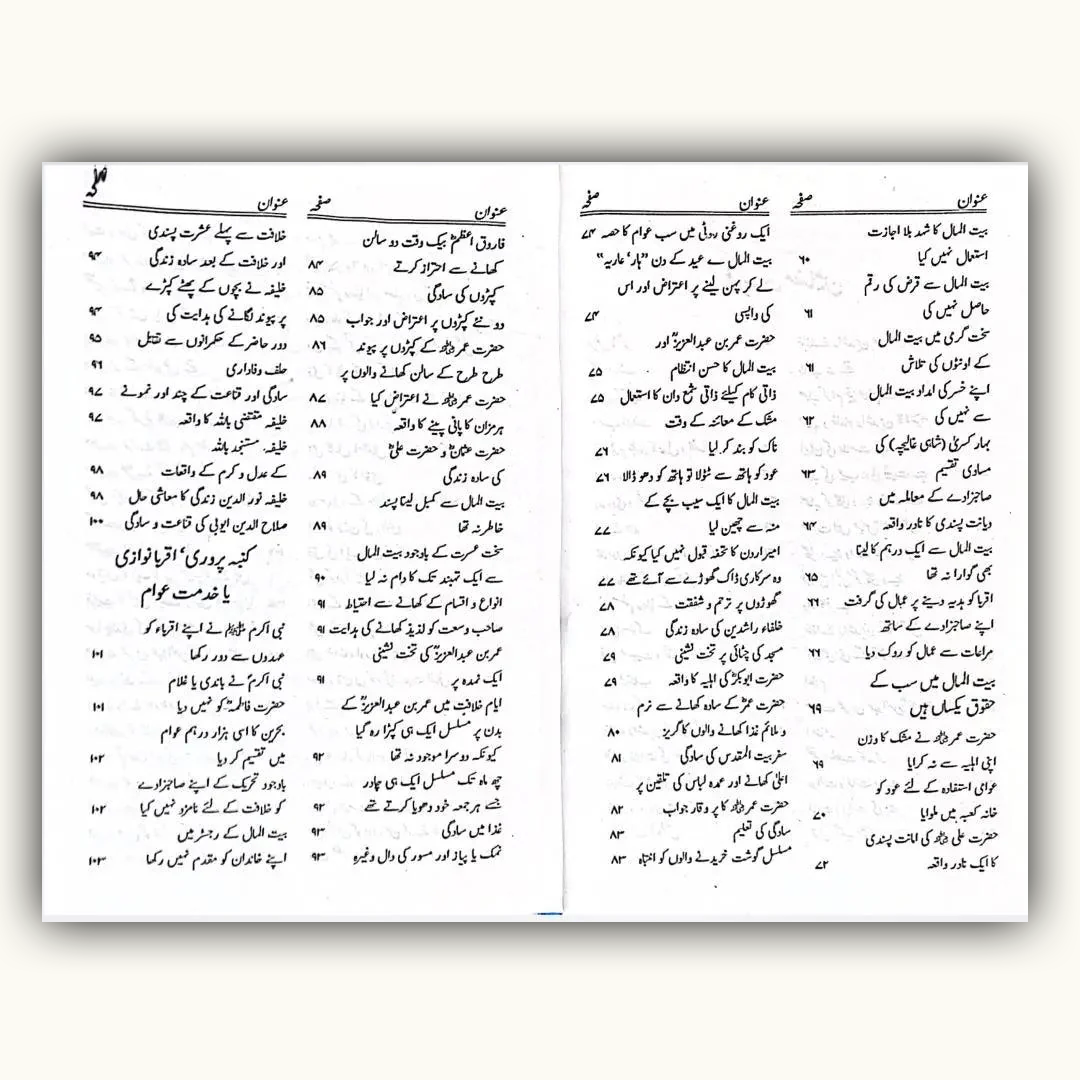 عنوان صفحہ
بیت المال کا شہد بلا اجازت
استعمال نہیں کیا ۶۰
بیت المال سے قرض کی رقم
حاصل نہیں کی ۶۱
سخت گری میں بیت المال
کے اونٹوں کی تلاش ۶۱
اپنے خسر کی امداد بیت المال
سے نہیں کی ۶۲
بہار کسریٰ (شاہی غالیچہ) کی
مساوی تقسیم ۶۳
صاحبزادے کے معاملہ میں
دیانت پسندی کا نادر واقعہ ۶۴
بیت المال سے ایک درہم کا لینا
بھی گوارا نہ تھا ۶۵
اقربا کو ہدیہ دینے پر عمال کی گرفت ۶۶
اپنے صاحبزادے کے ساتھ
مراعات سے عمال کو روک دیا ۶۶
بیت المال میں سب کے
حقوق یکساں ہیں ۶۹
حضرت عمرؓ نے مشک کا وزن
اپنی اہلیہ سے نہ کرایا ۶۹
عوامی استفادہ کے لئے عود کو
خانہ کعبہ میں ملوایا ۷۰
حضرت علیؓ کی امانت پسندی
کا ایک نادر واقعہ ۷۲
عنوان صفحہ
ایک روغنی روٹی میں سب عوام کا حصہ ۷۴
بیت المال سے عید کے دن "ہار' عاریہ"
لے کر پہن لینے پر اعتراض اور اس
کی واپسی ۷۴
حضرت عمر بن عبدالعزیزؒ اور
بیت المال کا حسن انتظام ۷۵
ذاتی کام کیلئے ذاتی شمع دان کا استعمال ۷۵
مشک کے معائنہ کے وقت
ناک کو بند کر لیا ۷۶
عود کو ہاتھ سے ٹٹولا تو ہاتھ کو دھو ڈالا ۷۶
بیت المال کا ایک سیب بچے کے
منہ سے چھین لیا ۷۷
امیر اردن کا تحفہ قبول نہیں کیا کیونکہ
وہ سرکاری ڈاک گھوڑے سے آئے تھے ۷۷
گھوڑوں پر ترحم و شفقت ۷۸
خلفاء راشدین کی سادہ زندگی ۷۸
مسجد کی چٹائی پر تخت نشینی ۷۹
حضرت ابوبکرؓ کی اہلیہ کا واقعہ ۷۹
حضرت عمرؓ کے سادہ کھانے سے نرم
و ملائم غذا کھانے والوں کا گریز ۸۰
سفر بیت المقدس کی سادگی ۸۱
اعلیٰ کھانے اور عمدہ لباس کی تلقین پر
حضرت عمرؓ کا پر وقار جواب ۸۲
سادگی کی تعلیم ۸۳
مسلسل گوشت خریدنے والوں کو انتباہ ۸۳
عنوان صفحہ
فاروق اعظمؓ بیک وقت دو سالن
کھانے سے احتراز کرتے ۸۴
کپڑوں کی سادگی ۸۵
دو نئے کپڑوں پر اعتراض اور جواب ۸۵
حضرت عمرؓ کے کپڑوں پر پیوند ۸۶
طرح طرح کے سالن کھانے والوں پر
حضرت عمرؓ نے اعتراض کیا ۸۷
ہرمزان کا پانی پینے کا واقعہ ۸۸
حضرت عثمانؓ و حضرت علیؓ
کی سادہ زندگی ۸۹
بیت المال سے کمبل لینا پسند
خاطر نہ تھا ۸۹
سخت عسرت کے باوجود بیت المال
سے ایک تہبند تک کا دام نہ لیا ۹۰
انواع و اقسام کے کھانے سے احتیاط ۹۱
صاحب وسعت کو لذیذ کھانے کی ہدایت ۹۱
عمر بن عبدالعزیزؒ کی تخت نشینی
ایک نمدہ پر ۹۱
ایام خلافت میں عمر بن عبدالعزیزؒ کے
بدن پر مسلسل ایک ہی کپڑا رہ گیا
کیونکہ دوسرا موجود نہ تھا ۹۲
چھ ماہ تک مسلسل ایک ہی چادر
جسے ہر جمعہ خود دھویا کرتے تھے ۹۲
غذا میں سادگی ۹۳
نمک یا پیاز اور مسور کی دال وغیرہ ۹۳
عنوان صفحہ
خلافت سے پہلے عشرت پسندی
اور خلافت کے بعد سادہ زندگی ۹۴
خلیفہ نے بچوں کے پھٹے کپڑے
پر پیوند لگانے کی ہدایت کی ۹۴
دور حاضر کے حکمرانوں سے تقابل ۹۵
حلف وفاداری ۹۶
سادگی اور قناعت کے چند اور نمونے ۹۷
خلیفہ مقتضی باللہ کا واقعہ ۹۷
خلیفہ مستنجد باللہ
کے عدل و کرم کے واقعات ۹۸
خلیفہ نور الدین زندگی کا معاشی حال ۹۸
صلاح الدین ایوبی کی قناعت و سادگی ۱۰۰
کنبہ پروری' اقربا نوازی
یا خدمت عوام
نبی اکرم ﷺ نے اپنے اقرباء کو
عہدوں سے دور رکھا ۱۰۱
نبی اکرمؐ نے باندی یا غلام
حضرت فاطمہؓ کو نہیں دیا ۱۰۱
بحرین کا اسی ہزار درہم عوام
میں تقسیم کر دیا ۱۰۲
باوجود تحریک کے اپنے صاحبزادے
کو خلافت کے لئے نامزد نہیں کیا ۱۰۲
بیت المال کے رجسٹر میں
اپنے خاندان کو مقدم نہیں رکھا ۱۰۳